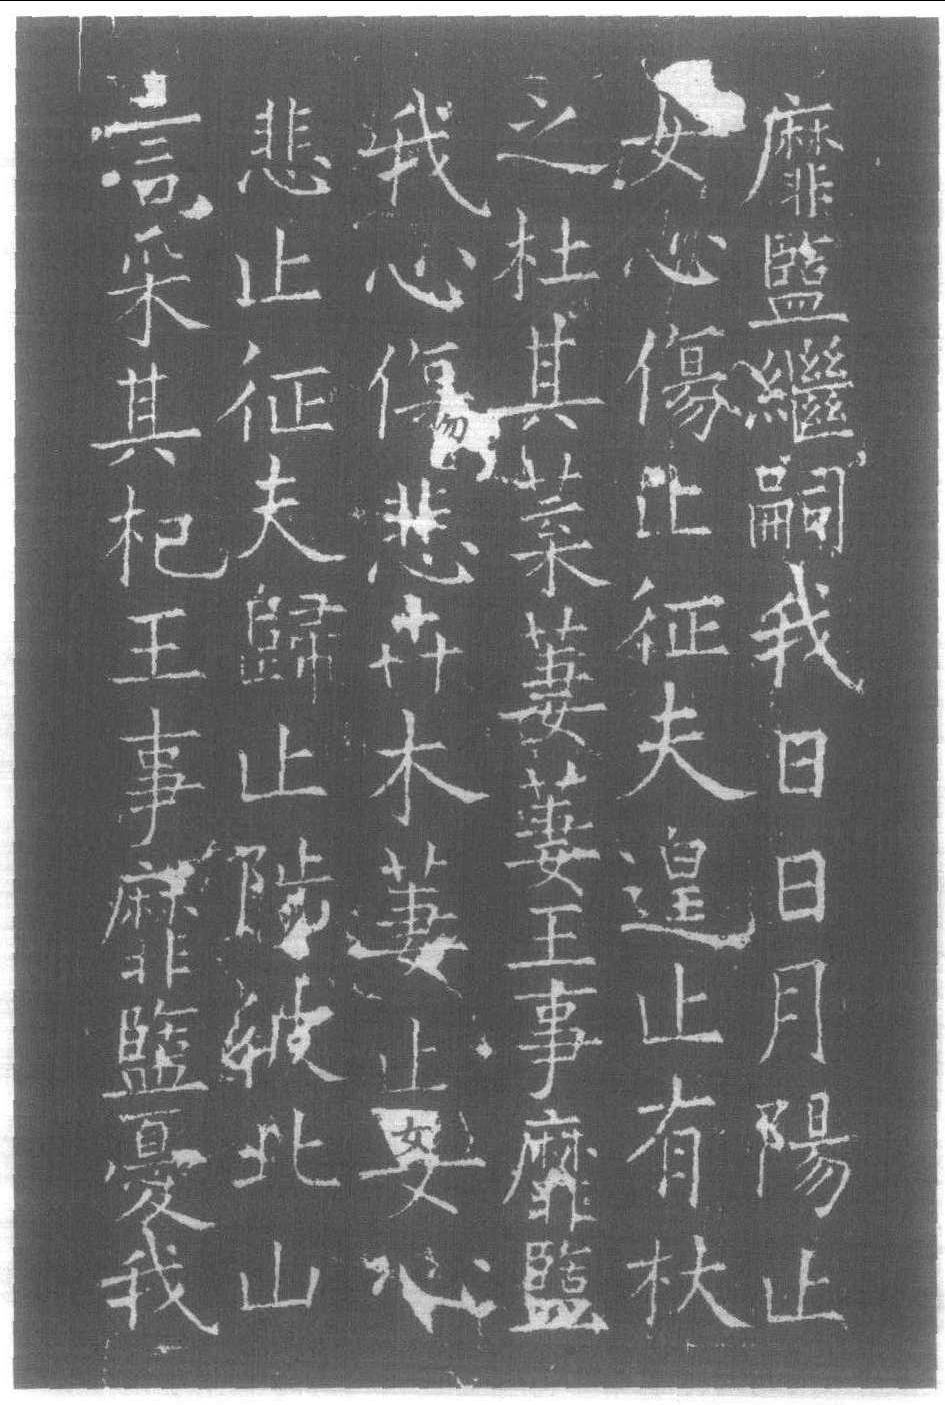 靡盬繼嗣我日日月陽止
女心傷止征夫遑止有杕
之杜其葉萋萋王事靡盬
我心傷悲卉木萋止女心
悲止征夫歸止陟彼北山
言采其杞王事靡盬憂我